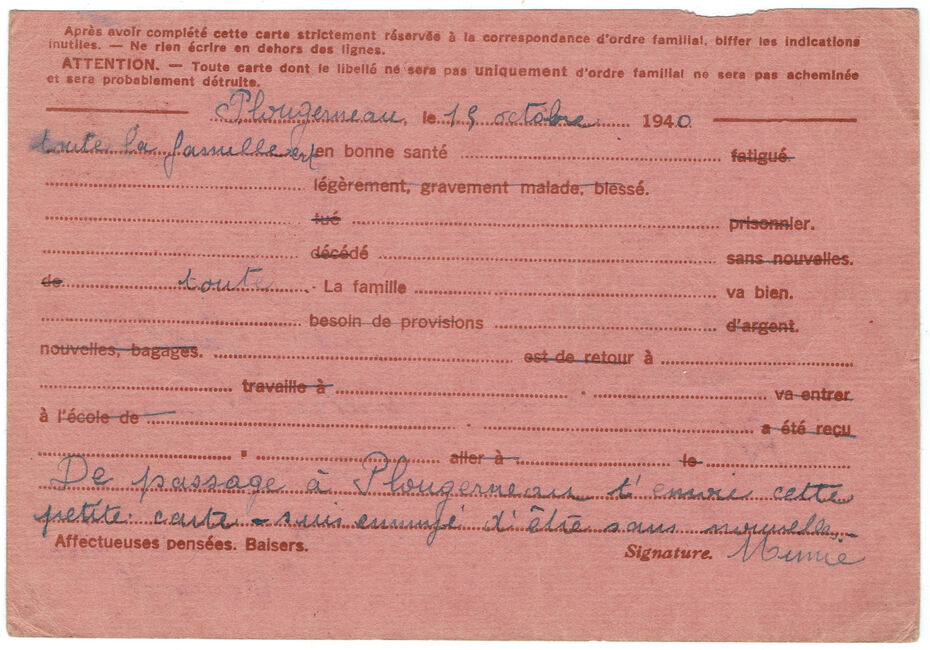 Après avoir complété cette carte strictement réservée à la correspondance d'ordre familial, biffer les indications
inutiles. — Ne rien écrire en dehors des lignes.
ATTENTION. — Toute carte dont le libellé ne sera pas uniquement d'ordre familial ne sera pas acheminée
et sera probablement détruite.
Plougerneau, le 15 octobre 1940
toute la famille est en bonne santé fatigué
légèrement, gravement malade, blessé.
tué prisonnier.
décédé sans nouvelles.
de toute La famille va bien.
besoin de provisions d'argent.
nouvelles, bagages. est de retour à
travaille à va entrer
à l'école de a été reçu
aller à le
De passage à Plougerneau t'envoie cette
petite carte - suis ennuyé d'être sans nouvelles.
Affectueuses pensées. Baisers. Signature.